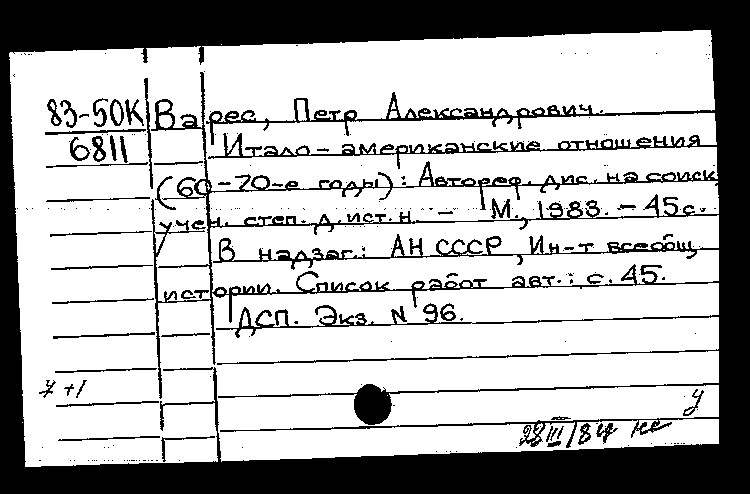 83-50К Варес, Петр Александрович.
6811 Итало-американские отношения
(60-70-е годы): Автореф. дис. на соиск.
учен. степ. д. ист. н. - М., 1983. - 45 с.
В надзаг.: АН СССР, Ин-т всеобщ.
истории. Список работ авт.: с. 45.
ДСП. Экз. N 96.
у
28 III/84